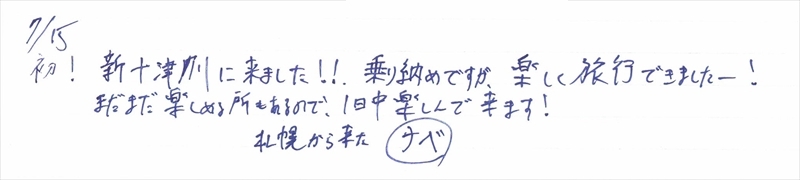 7/15
初! 新十津川に来ました!!. 乗り納めですが、楽しく旅行できましたー!
まだまだ楽しめる所もあるので、1日中楽しんで来ます!
札幌から来た ナベ